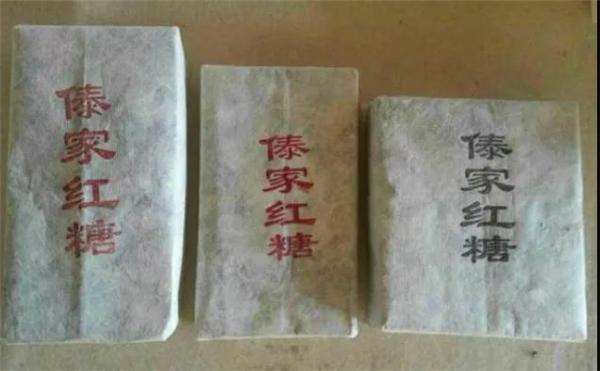 傣家红糖
傣家红糖
傣家红糖